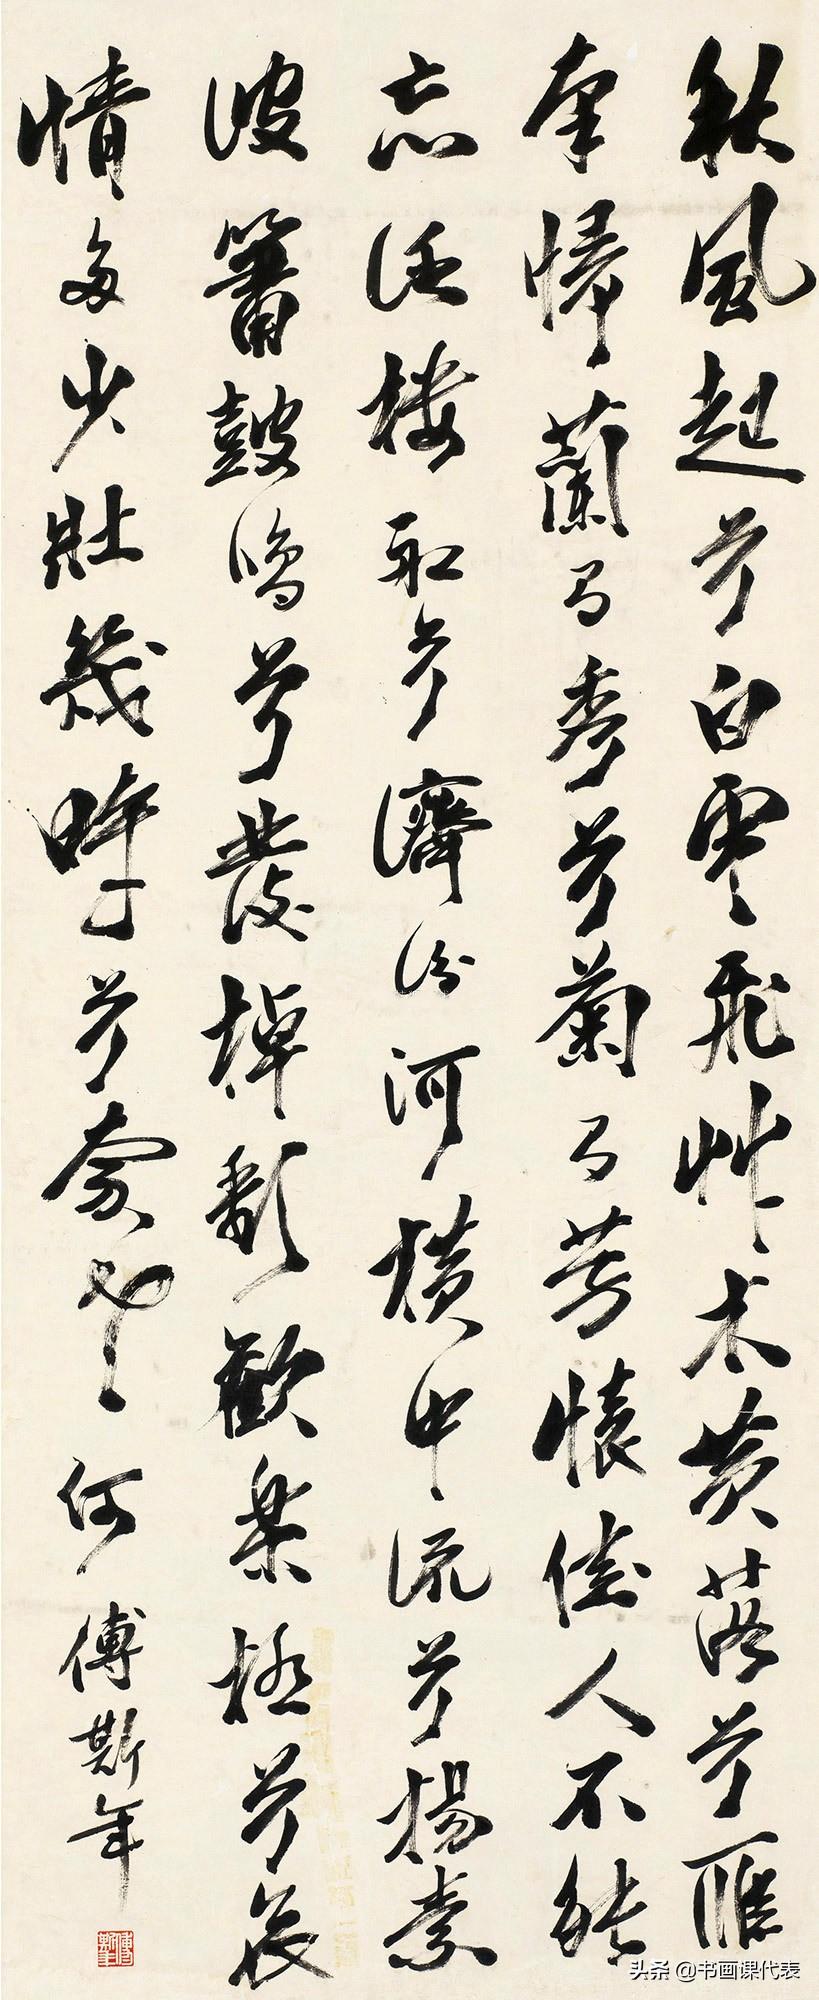 秋風起兮白雲飛艸木黃落兮雁
南歸蘭有秀兮菊有芳懷佳人不能
忘泛樓船兮濟汾河橫中流兮揚素
波簫鼓鳴兮發棹歌歡樂極兮哀
情多少壯幾時兮奈老何 傅斯年
傅斯年
头条 @书画课代表